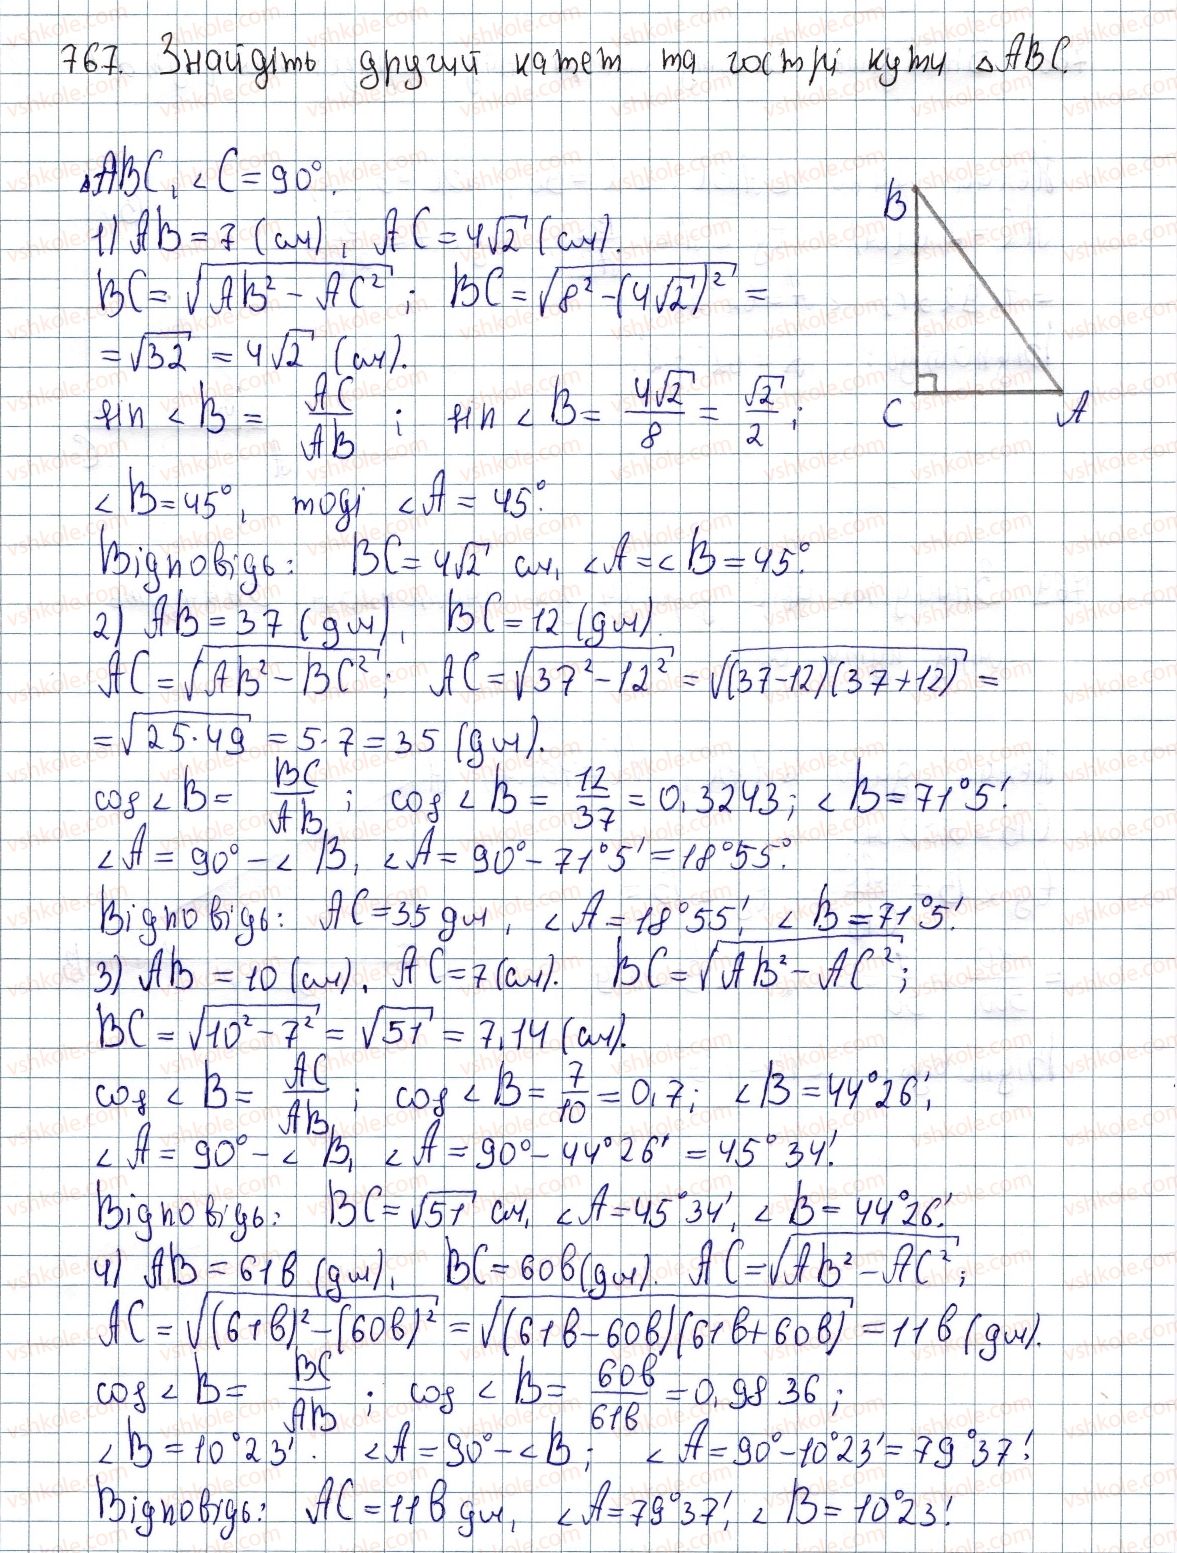 767. Знайдіть другий катет та гострі кути △ABC.
△ABC, ∠C = 90°.
1) AB = 7 (см), AC = 4√2 (см).
BC = √(AB² − AC²); BC = √(8² − (4√2)²) =
= √32 = 4√2 (см).
sin ∠B = AC/AB; sin ∠B = 4√2/8 = √2/2;
∠B = 45°, тоді ∠A = 45°.
Відповідь: BC = 4√2 см, ∠A = ∠B = 45°.
2) AB = 37 (дм), BC = 12 (дм).
AC = √(AB² − BC²); AC = √(37² − 12²) = √((37−12)(37+12)) =
= √(25·49) = 5·7 = 35 (дм).
cos ∠B = BC/AB; cos ∠B = 12/37 = 0,3243; ∠B = 71°5′.
∠A = 90° − ∠B, ∠A = 90° − 71°5′ = 18°55°.
Відповідь: AC = 35 дм, ∠A = 18°55′, ∠B = 71°5′.
3) AB = 10 (см), AC = 7 (см). BC = √(AB² − AC²);
BC = √(10² − 7²) = √51 = 7,14 (см).
cos ∠B = AC/AB; cos ∠B = 7/10 = 0,7; ∠B = 44°26′;
∠A = 90° − ∠B, ∠A = 90° − 44°26′ = 45°34′.
Відповідь: BC = √51 см, ∠A = 45°34′, ∠B = 44°26′.
4) AB = 61в (дм), BC = 60в (дм). AC = √(AB² − AC²);
AC = √((61в)² − (60в)²) = √((61в − 60в)(61в + 60в)) = 11в (дм).
cos ∠B = BC/AB; cos ∠B = 60в/61в = 0,9836;
∠B = 10°23′. ∠A = 90° − ∠B; ∠A = 90° − 10°23′ = 79°37′.
Відповідь: AC = 11в дм, ∠A = 79°37′, ∠B = 10°23′.
B
C
A
vshkole.com